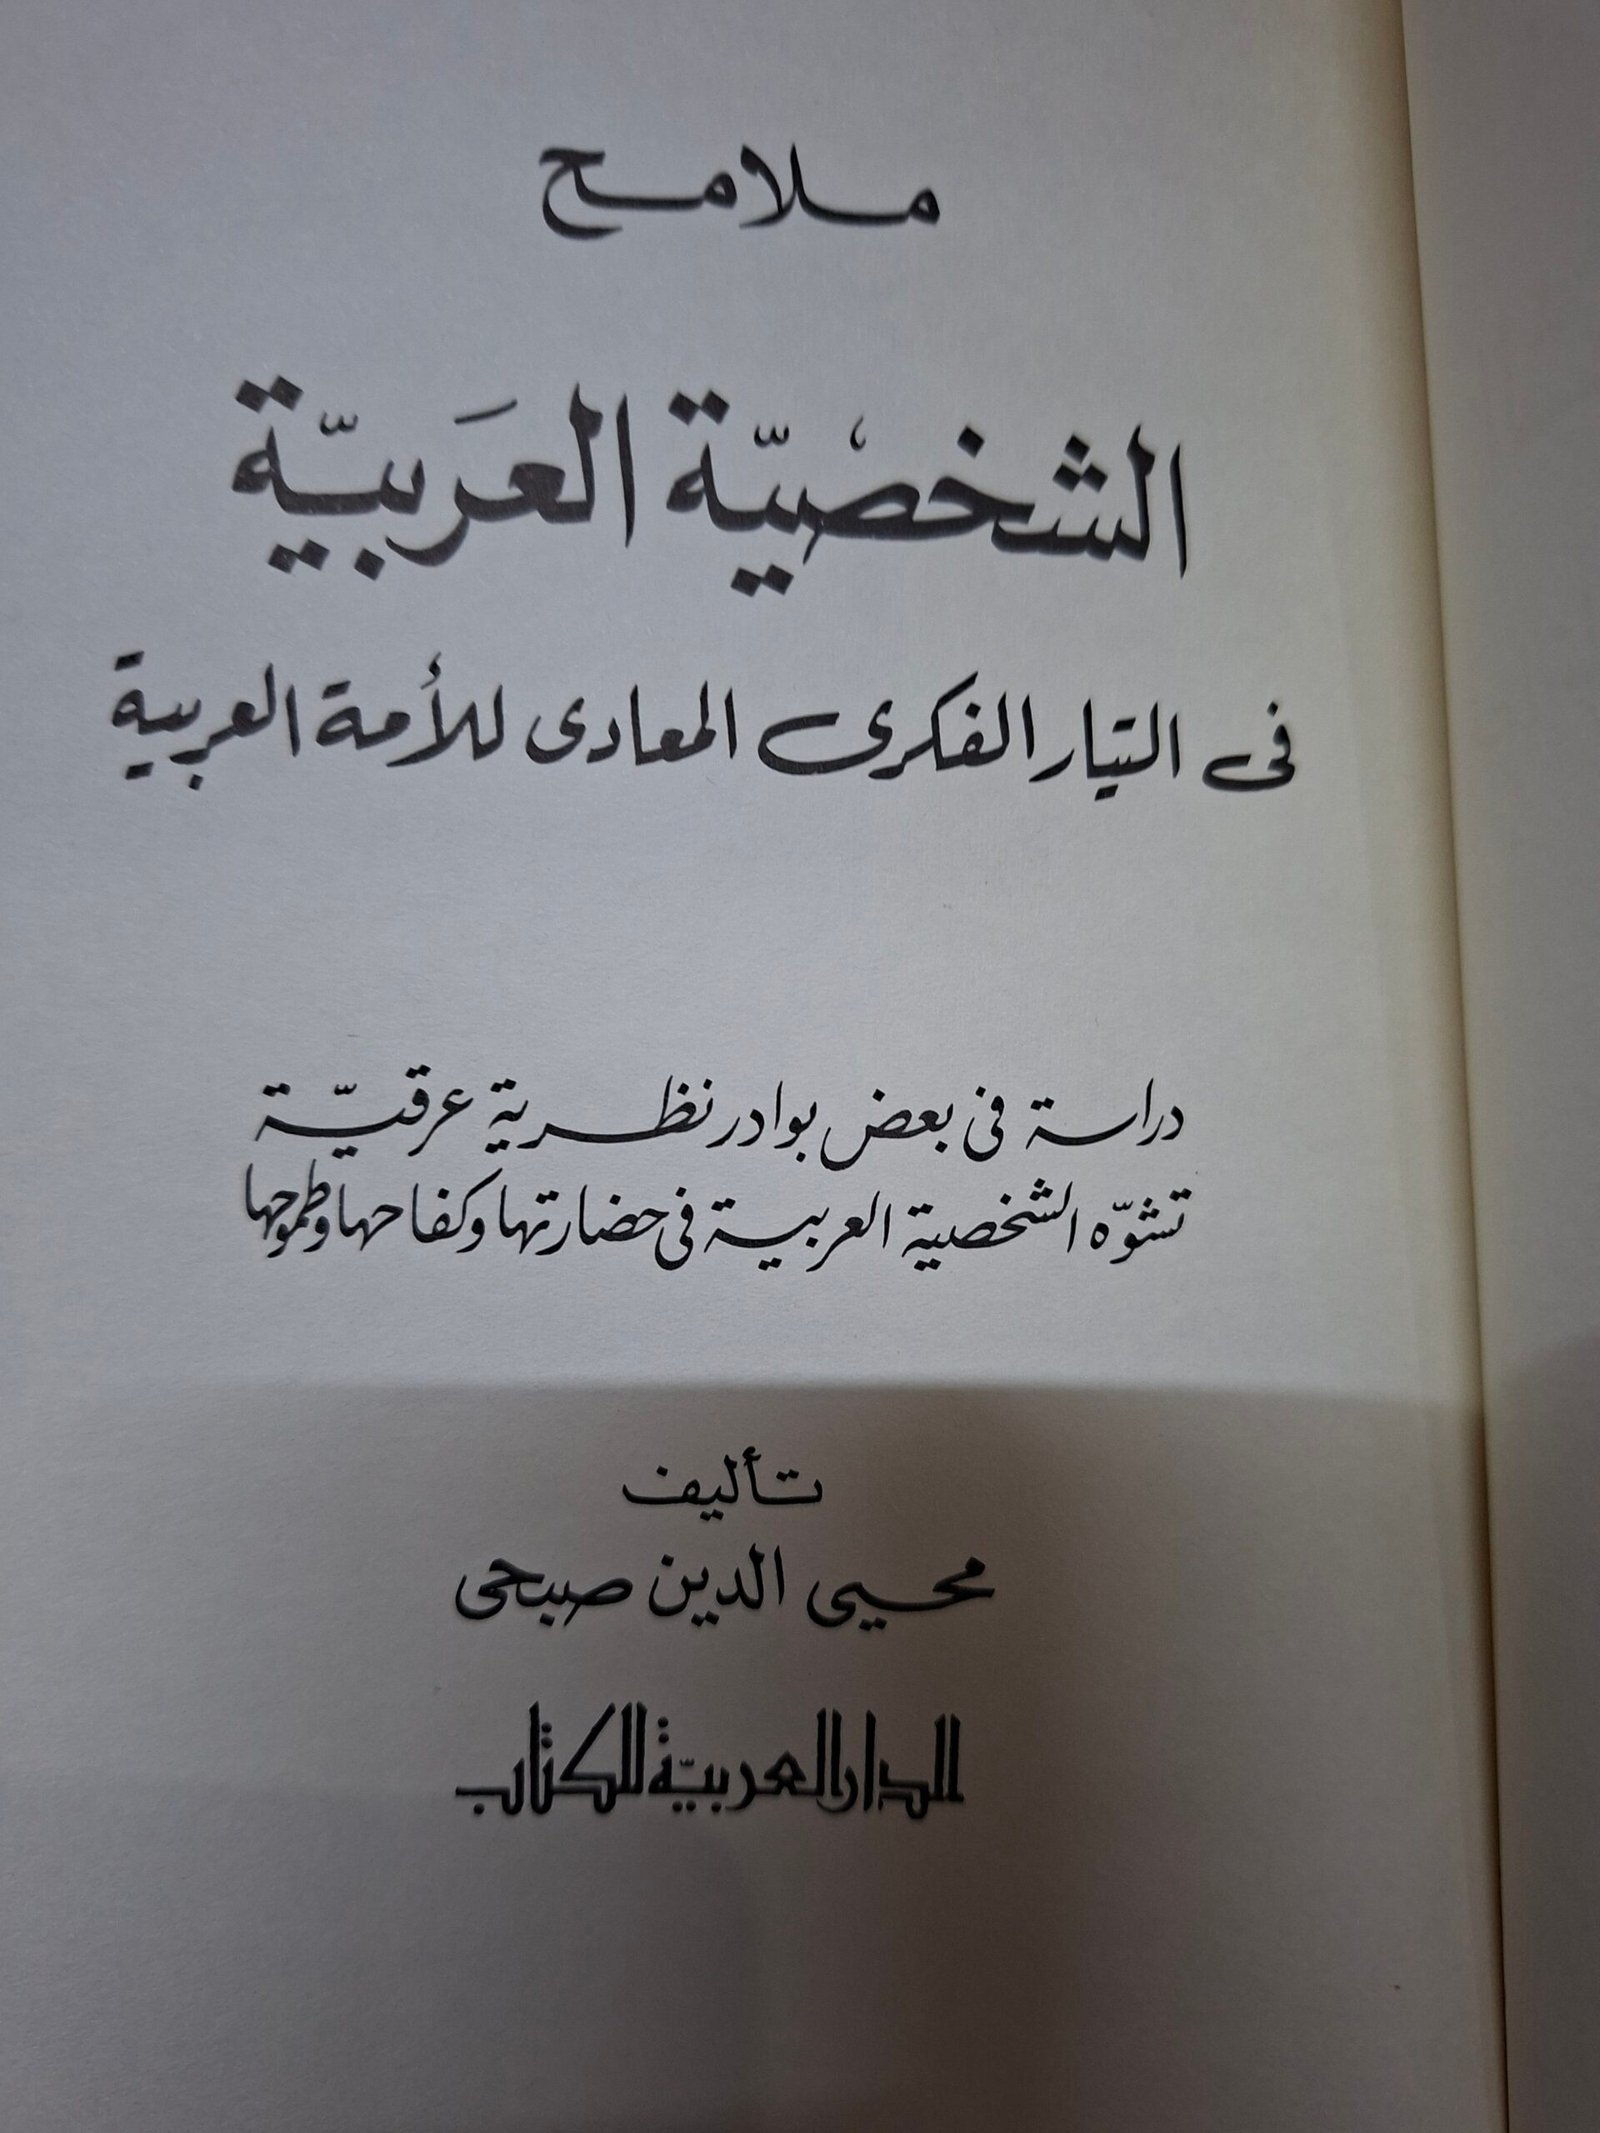 ملامح
الشخصيّة العَربيّة
فى التيار الفكرى المعادى للأمة العربية
دراسة فى بعض بوادر نظرية عرقيّة
تشوّه الشخصية العربية فى حضارتها وكفاحها وطموحها
تأليف
محيى الدين صبحى
الدار العربيّة للكتاب